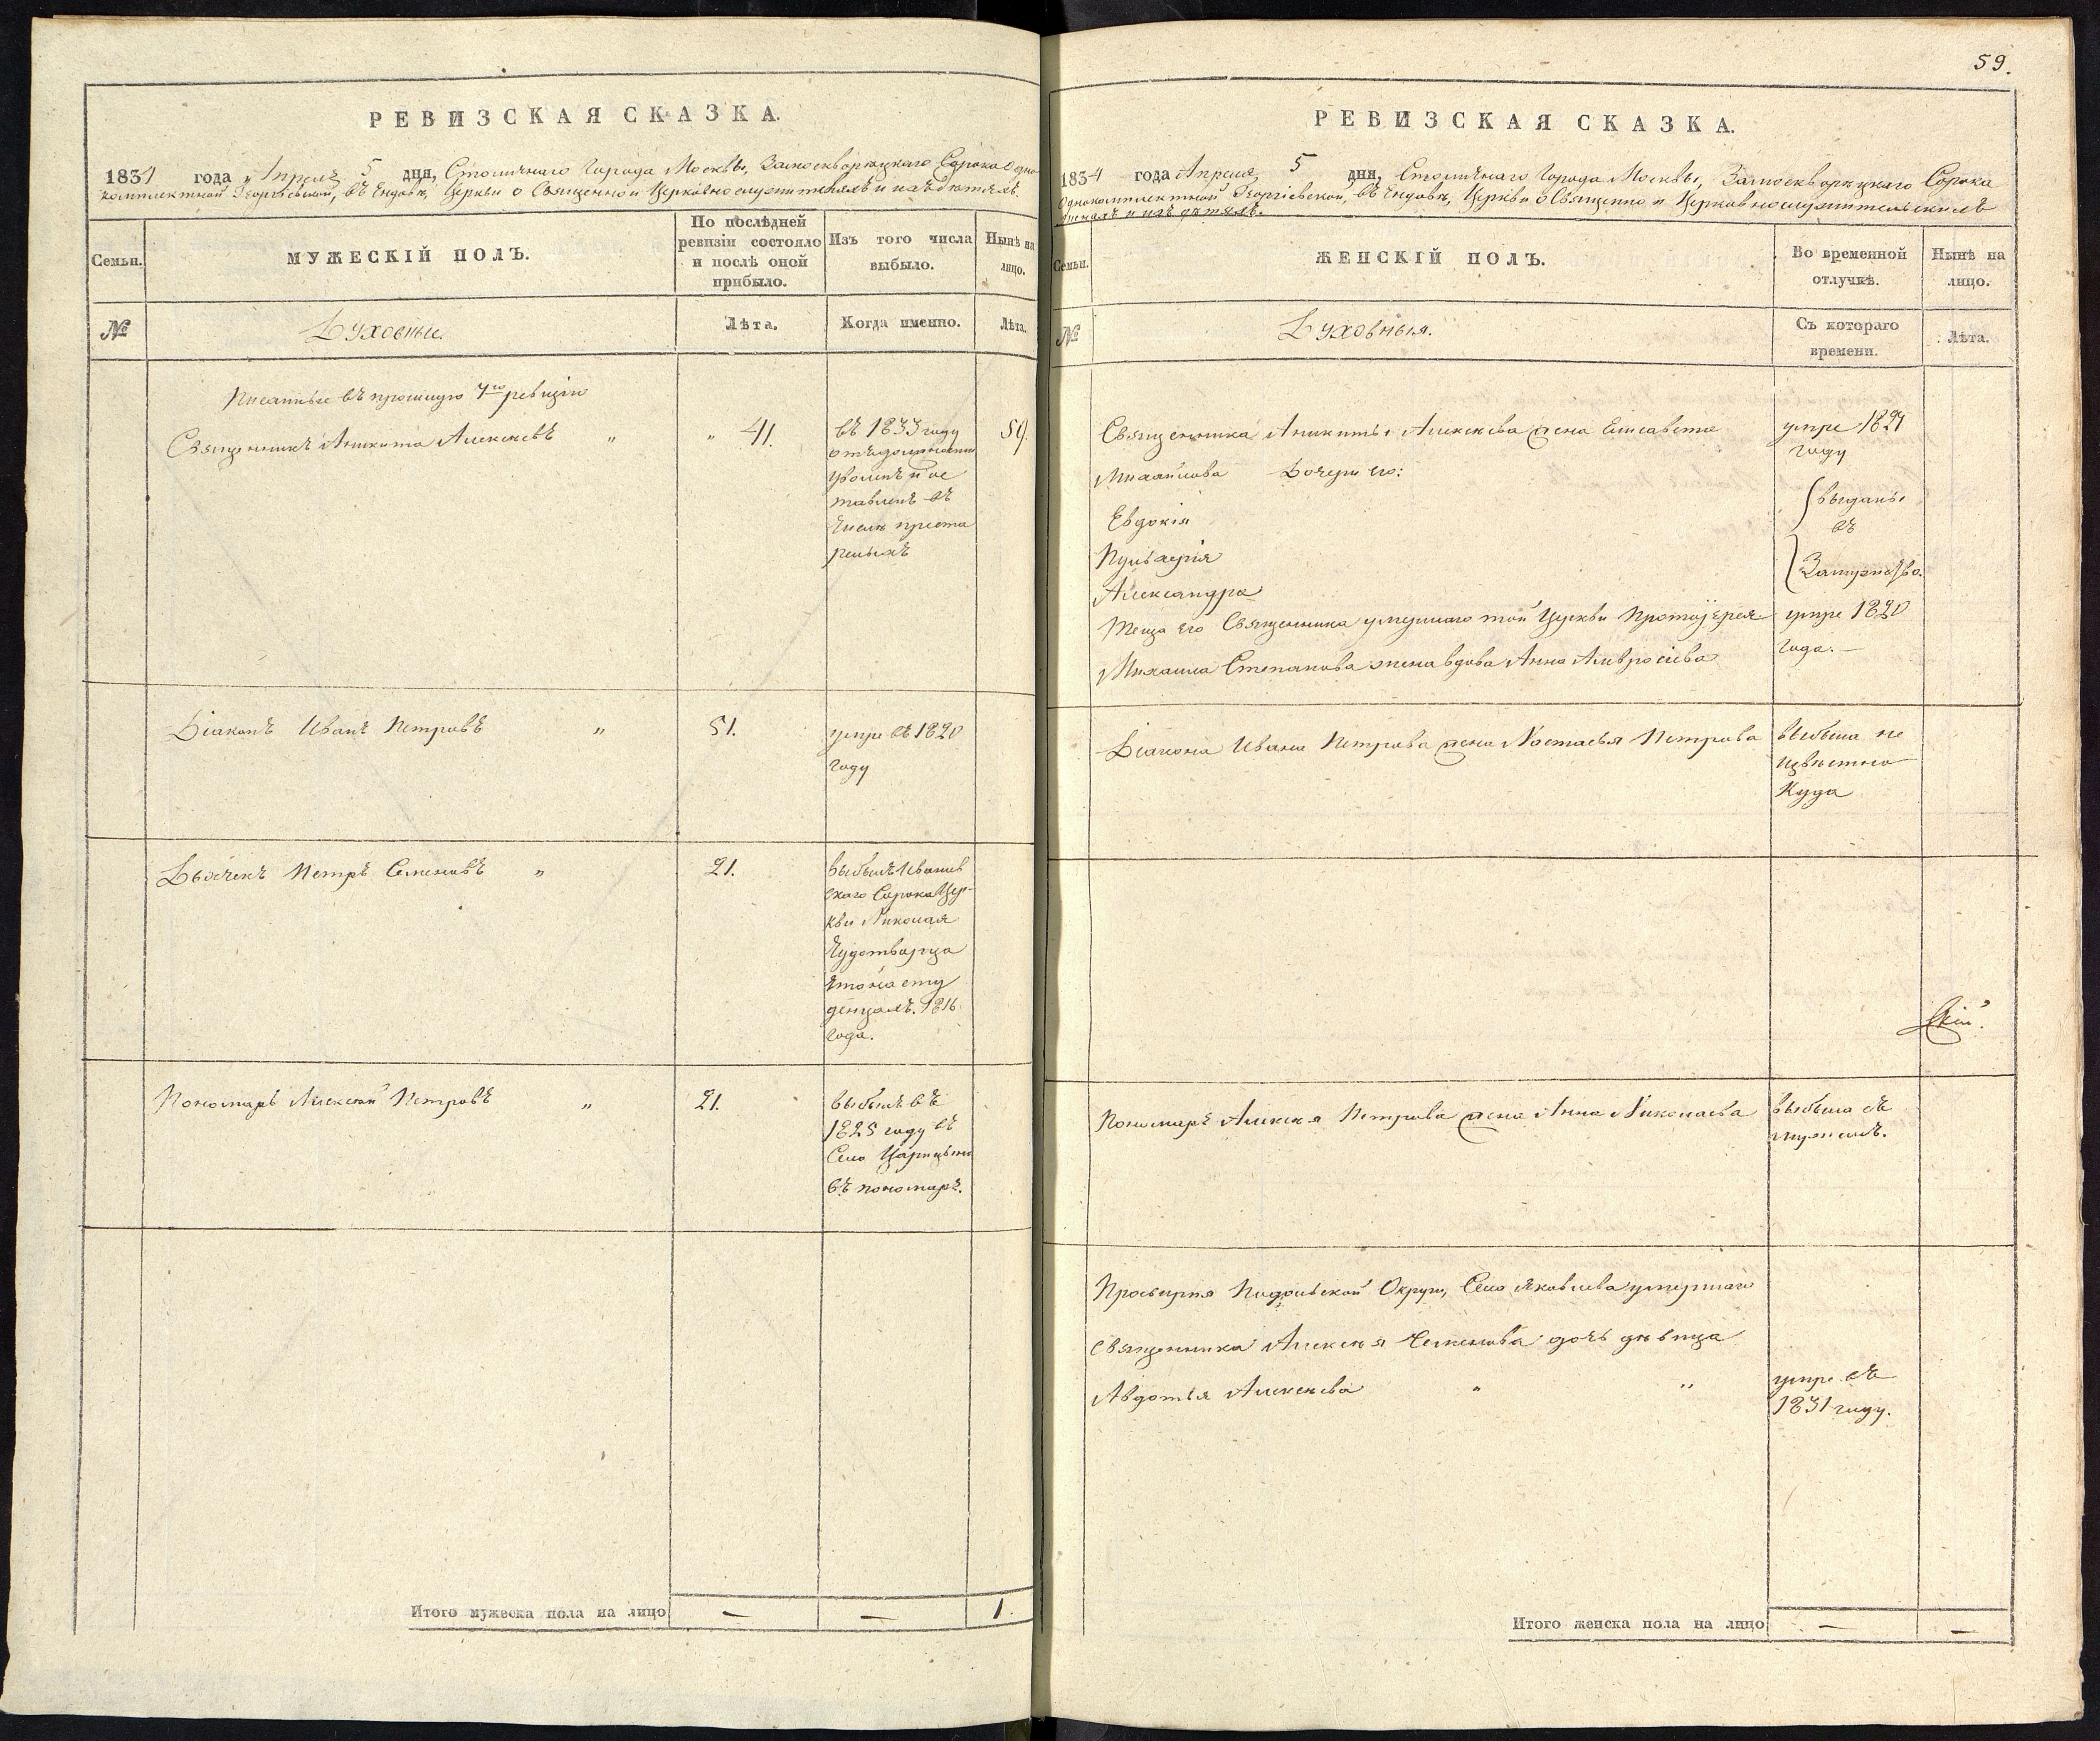 РЕВИЗСКАЯ СКАЗКА.
1834 года Апреля 5 дня, Столичнаго Города Москвы, Замоскворѣцкаго Сорока Одно
комплектной Георгіевской, въ Ендовѣ, Церкви о Священно и Церковнослужителяхъ и ихъ дѣтяхъ.
Семьи.
МУЖЕСКІЙ ПОЛЪ.
По послѣдней ревизіи состояло и послѣ оной прибыло.
Изъ того числа выбыло.
Нынѣ на лицо.
№
Духовные.
Лѣта.
Когда именно.
Лѣта.
Писанные въ прошлую 7ю ревизію
Священникъ Аникита Алексѣевъ " " 41.
въ 1833 году
отъ должности
уволенъ и ос
тавленъ въ
числѣ преста
релыхъ
59.
Діаконъ Иванъ Петровъ " 51.
умре въ 1820
году
Дьячекъ Петръ Семеновъ " 21.
выбылъ Ивановс
скаго Сорока Цер-
кви Николая
Чудотворца
что на сту
денцахъ. 1816
года.
Пономарь Алексѣй Петровъ " 21.
выбылъ въ
1825 году въ
Село Царицыно
въ пономари.
Итого мужеска пола на лицо — — 1.
59.
РЕВИЗСКАЯ СКАЗКА.
1834 года Апреля, 5 дня, Столичнаго Города Москвы, Замоскворѣцкаго Сорока
Однокомплектной Георгіевской, въ Ендовѣ, Церкви о Священно и Церковнослужительскихъ
женахъ и ихъ дѣтяхъ.
Семьи.
ЖЕНСКІЙ ПОЛЪ.
Во временной отлучкѣ.
Нынѣ на лицо.
№
Духовныя.
Съ котораго времени.
Лѣта.
Священника Аникиты Алексѣева жена Елисавета
Михайлова Дочери его:
умре 1824
году
Евдокія
Пульхерія
Александра
выданы
въ
Замужество.
Теща его Священника умершаго той Церкви Протоіерея
Михаила Степанова жена вдова Анна Амвросіева
умре 1820
года.—
Діакона Ивана Петрова жена Настасья Петрова
выбыла не
извѣстно
куда
скій.
Пономаря Алексѣя Петрова жена Анна Николаева
выбыла съ
мужемъ.
Просвирня Подольской Округи, Села Яковлева умершаго
священника Алексѣя Семенова дочь дѣвица
Авдотья Алексѣева " "
умре въ
1831 году.
Итого женска пола на лицо — —